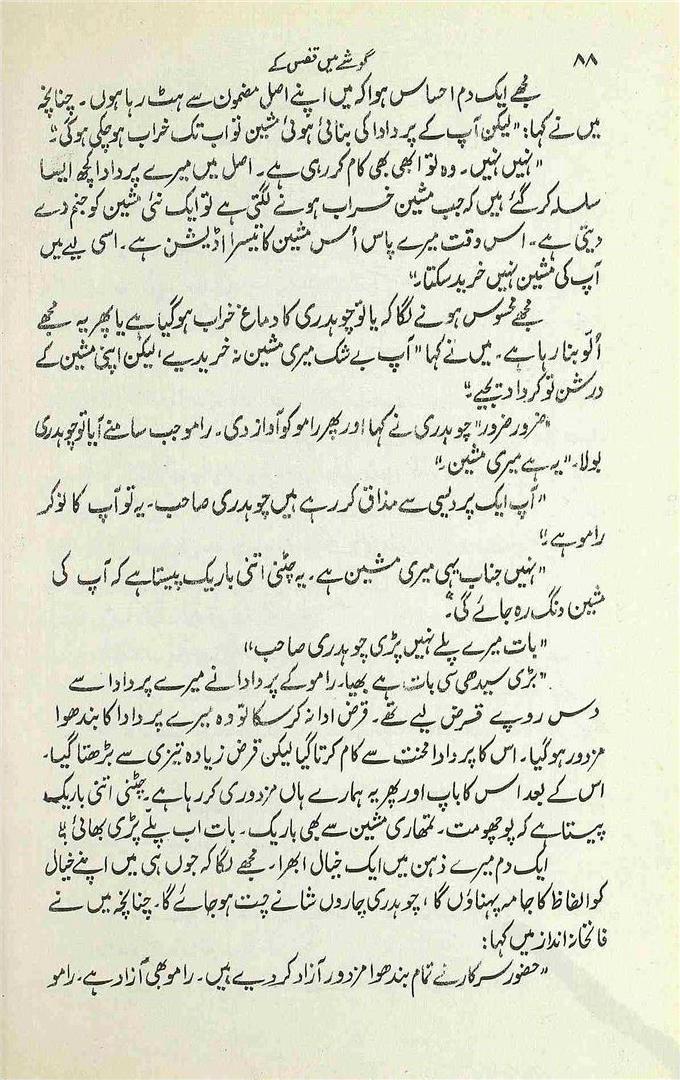 ۸۸
گوشے میں قفس کے
مجھے ایک دم احساس ہوا کہ میں اپنے اصل مضمون سے ہٹ رہا ہوں۔ چنانچہ
میں نے کہا: "لیکن آپ کے پردادا کی بنائی ہوئی مشین تو اب تک خراب ہو چکی ہوگی۔"
"نہیں نہیں۔ وہ تو ابھی بھی کام کر رہی ہے۔ اصل میں میرے پردادا کچھ ایسا
سلسلہ کر گئے ہیں کہ جب مشین خراب ہونے لگتی ہے تو ایک نئی مشین کو جنم دے
دیتی ہے۔ اس وقت میرے پاس اُس مشین کا تیسرا اڈیشن ہے۔ اسی لیے میں
آپ کی مشین نہیں خرید سکتا۔"
مجھے محسوس ہونے لگا کہ یا تو چوہدری کا دماغ خراب ہو گیا ہے یا پھر یہ مجھے
اُلّو بنا رہا ہے۔ میں نے کہا "آپ بے شک میری مشین نہ خریدیے، لیکن اپنی مشین کے
درشن تو کروا دیجیے۔"
"ضرور ضرور" چوہدری نے کہا اور پھر رامو کو آواز دی۔ رامو جب سامنے آیا تو چوہدری
بولا۔ "یہ ہے میری مشین۔"
"آپ ایک پردیسی سے مذاق کر رہے ہیں چوہدری صاحب۔ یہ تو آپ کا نوکر
رامو ہے۔"
"نہیں جناب یہی میری مشین ہے۔ یہ چٹنی اتنی باریک پیستا ہے کہ آپ کی
مشین دنگ رہ جائے گی۔"
"بات میرے پلے نہیں پڑی چوہدری صاحب"
"بڑی سیدھی سی بات ہے بھیا۔ رامو کے پردادا نے میرے پردادا سے
دس روپے قرض لیے تھے۔ قرض ادا نہ کر سکا تو وہ میرے پردادا کا بندھوا
مزدور ہو گیا۔ اس کا پردادا محنت سے کام کرتا گیا لیکن قرض زیادہ تیزی سے بڑھتا گیا۔
اس کے بعد اس کا باپ اور پھر یہ ہمارے ہاں مزدوری کر رہا ہے۔ چٹنی اتنی باریک
پیستا ہے کہ پوچھو مت۔ تمھاری مشین سے بھی باریک۔ بات اب پلّے پڑی بھائی۔"
ایک دم میرے ذہن میں ایک خیال ابھرا۔ مجھے لگا کہ جوں ہی میں اپنے خیال
کو الفاظ کا جامہ پہناؤں گا، چوہدری چاروں شانے چت ہو جائے گا۔ چنانچہ میں نے
فاتحانہ انداز میں کہا:
"حضور سرکار نے تمام بندھوا مزدور آزاد کر دیے ہیں۔ رامو بھی آزاد ہے۔ رامو